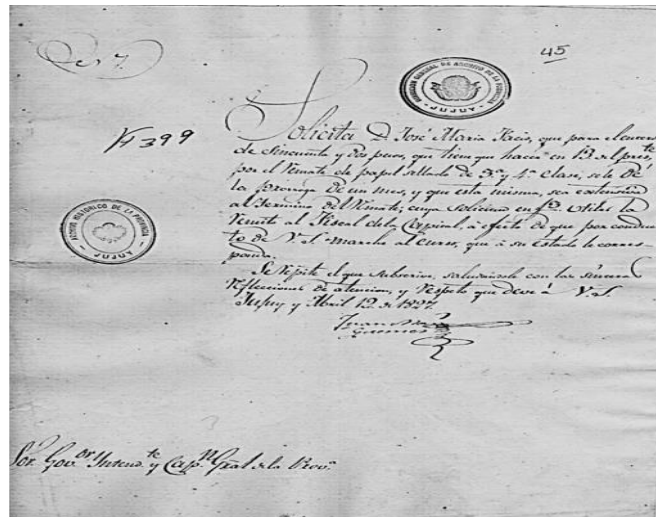 45
N 399
Solicita D. José Maria que para el entero
de Sincuenta y dos pesos, que tiene que hacer en 13 del pres.te
por el Remate de papel sellado de 3.a y 4.a Clase, se le dé
la proroga de un mes, y que esta misma, sea extensiva
al termino del Remate; cuya solicitud en f.s utiles la
Remito al Fiscal de la Capital, a efecto de que por conduc
to de V.S. marche al Curso, que a su Estado le corres-
ponda.
Se repite el que subscrive, saludandole con las sinceras
reflecciones de atencion, y respeto que deve á V.S.
Jujuy y Abril 12 de 1827.
Sor. Gov.or Intend.te y Cap.n Gral de la Prov.a
ARCHIVO HISTORICO DE LA PROVINCIA
JUJUY